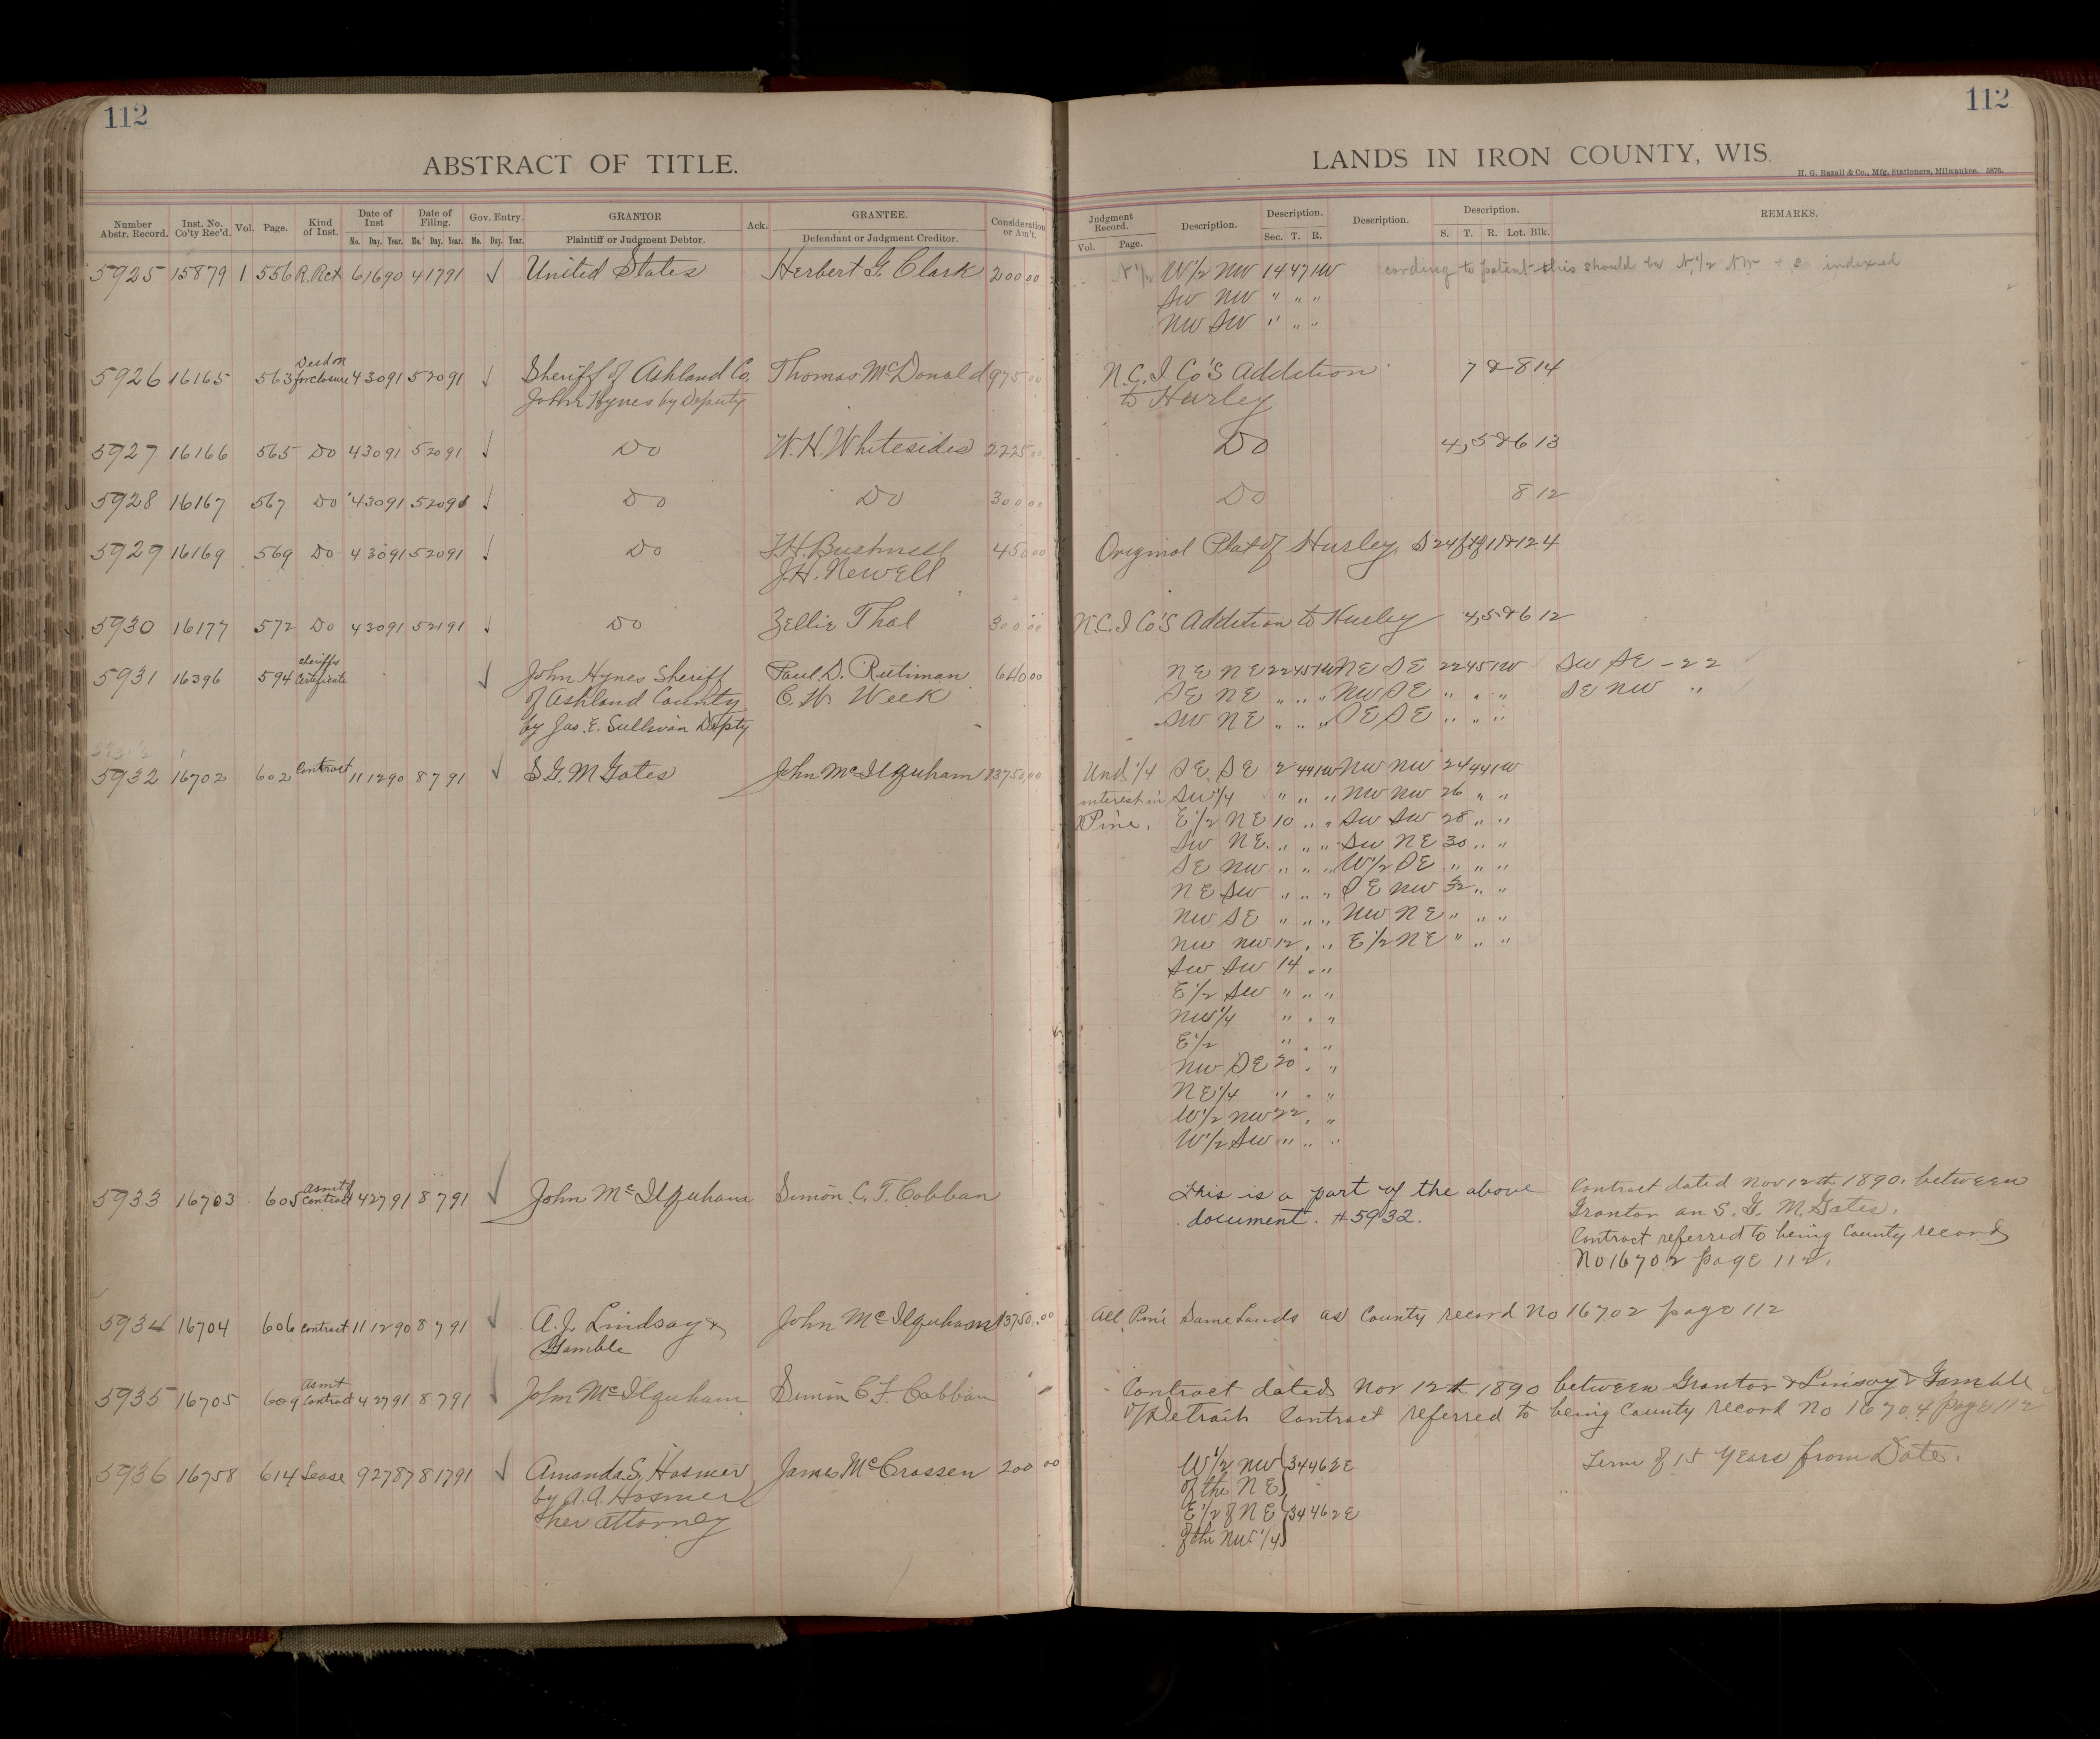 112
112
ABSTRACT OF TITLE.
LANDS IN IRON COUNTY, WIS.
H. G. Razall & Co., Mfg. Stationers, Milwaukee. 5876.
Number Abstr. Record. Inst. No. Co'ty Rec'd. Vol. Page. Kind of Inst. Date of Inst Mo. Day. Year. Date of Filing. Mo. Day. Year. Gov. Entry. Mo. Day. Year. GRANTOR Plaintiff or Judgment Debtor. Ack. GRANTEE. Defendant or Judgment Creditor. Consideration or Am't.
Judgment Record. Vol. Page. Description. Description. Sec. T. R. Description. Description. S. T. R. Lot. Blk. REMARKS.
5925 15879 1 556 R. Rct 6 16 90 4 17 91 ✓ United States Herbert G. Clark 200 00 N 1/2 W 1/2 NW 14 47 1W cording to patent this should be N 1/2 NW indexed
SW NW " " "
NW SW " " "
5926 16165 563 Deed on forclosure 4 30 91 5 20 91 ✓ Sheriff of Ashland Co. Thomas McDonald 975 00 N.C.I Co'S Addition 7 & 8 14
John Hynes by Deputy to Hurley
5927 16166 565 Do 4 30 91 5 20 91 ✓ Do W. H. Whitesides 2225 00 Do 4, 5 & 6 13
5928 16167 567 Do 4 30 91 5 20 91 ✓ Do Do 300 00 Do 8 12
5929 16169 569 Do 4 30 91 5 20 91 ✓ Do Bushnell 450 00 Original Plat of Hurley. 11 & 12 4
J. H. Newell
5930 16177 572 Do 4 30 91 5 21 91 ✓ Do Zellie Thal 300 00 N.C.I Co'S Addition to Hurley 4, 5 & 6 12
5931 16396 594 Sheriffs Certificate ✓ John Hynes Sheriff Paul D. Rutiman 640 00 NE NE 22 45 1W NE SE 22 45 1W SW SE - 22
of Ashland County C. W. Week SE NE " " " NW SE " " " SE NW "
by Jas. E. Sullivan Depty SW NE " " " SE SE " " "
5932 16702 602 Contract 11 12 90 8 7 91 ✓ S. G. M Gates John McIlquham 13750.00 Und. 1/4 SE SE 2 44 1W NW NW 24 44 1W
interest in SW 1/4 " " " NW NW 26 " "
Pine. E 1/2 NE 10 " " SW SW 28 " "
SW NE " " " SW NE 30 " "
SE NW " " " W 1/2 SE " " "
NE SW " " " SE NW 32 " "
NW SE " " " NW NE " " "
NW NW 12 " " E 1/2 NE " " "
SW SW 14 " "
E 1/2 SW " " "
NW 1/4 " " "
E 1/2 " " "
NW SE 20 " "
NE 1/4 " " "
W 1/2 NW 22 " "
W 1/2 SW " " "
5933 16703 605 Asmt of Contract 4 27 91 8 7 91 ✓ John McIlquham Simon C. T. Cobban This is a part of the above Contract dated Nov 12th 1890. between
document. #5932. Grantor an S. G. M. Gates.
Contract referred to being County record
No 16702 page 112.
5934 16704 606 Contract 11 12 90 8 7 91 ✓ A. J. Lindsay & John McIlquham 13750.00 All Pine Same Lands as County record No 16702 page 112
Gamble
5935 16705 609 Asmt Contract 4 27 91 8 7 91 ✓ John McIlquham Simon C T. Cobban Contract dated Nov 12th 1890 between Grantor & Linsay & Gamble
of Detroit Contract referred to being County record No 16704 page 112
5936 16758 614 Lease 9 27 87 8 17 91 ✓ Amanda S, Hosmer James McCrossen 200 00 W 1/2 NW 34 46 2E Term of 15 Years from Date.
by A. A. Hosmer of the NE
her attorney E 1/2 of NE 34 46 2E
of the NW 1/4